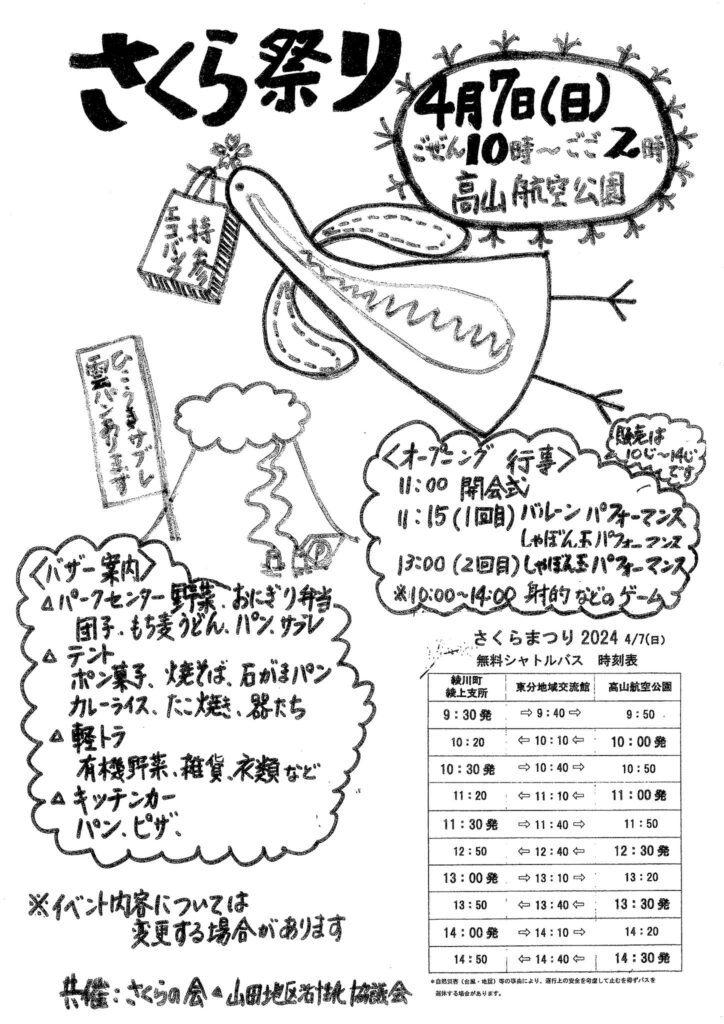 さくら祭り
4月7日(日)
ごぜん10時〜ごご2時
高山航空公園
持参
エコバッグ
ひこうきサブレ
雲パンあります
販売は
10じ〜14じ
です
<オープニング 行事>
11:00 開会式
11:15(1回目)バルーンパフォーマンス
しゃぼん玉パフォーマンス
13:00(2回目)しゃぼん玉パフォーマンス
※10:00〜14:00 射的などのゲーム
<バザー案内>
△パークセンター 野菜、おにぎり弁当
団子、もち麦うどん、パン、サブレ
△テント
ポン菓子、焼そば、石がまパン
カレーライス、たこ焼き、器たち
△軽トラ
有機野菜、雑貨、衣類など
△キッチンカー
パン、ピザ、
P
さくらまつり 2024 4/7(日)
無料シャトルバス 時刻表
綾川町
綾上支所 東分地域交流館 高山航空公園
9:30発 ⇨ 9:40 ⇨ 9:50
10:20 ⇦ 10:10 ⇦ 10:00発
10:30発 ⇨ 10:40 ⇨ 10:50
11:20 ⇦ 11:10 ⇦ 11:00発
11:30発 ⇨ 11:40 ⇨ 11:50
12:50 ⇦ 12:40 ⇦ 12:30発
13:00発 ⇨ 13:10 ⇨ 13:20
13:50 ⇦ 13:40 ⇦ 13:30発
14:00発 ⇨ 14:10 ⇨ 14:20
14:50 ⇦ 14:40 ⇦ 14:30発
*自然災害(台風・地震)等の事由により、運行上の安全を考慮して止むを得ずバスを
運休する場合があります。
※イベント内容については
変更する場合があります
共催:さくらの会▲山田地区活性化協議会